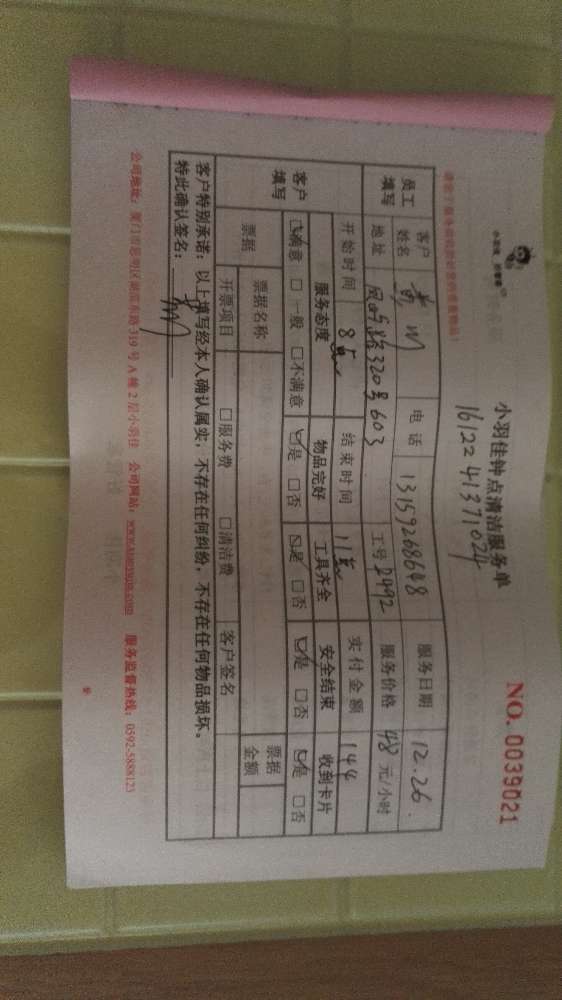 小羽佳钟点清洁服务单
NO. 0039021
1612241371024
员工填写 客户姓名 电话 13159268648 服务日期 12.26.
地址 320号603 工号 D492 服务价格 48 元/小时
开始时间 8点 结束时间 11点 实付金额 144
客户填写 服务态度 物品完好 工具齐全 安全结束 收到卡片
☑满意 □一般 □不满意 ☑是 □否 ☑是 □否 ☑是 □否 ☑是 □否
票据 票据名称 票据金额
开票项目 □服务费 □清洁费 客户签名
客户特别承诺：以上填写经本人确认属实，不存在任何纠纷，不存在任何物品损坏。
特此确认签名：
公司地址：厦门市思明区湖滨东路319号A幢2层小羽佳 公司网站： 服务监督热线：0592-5888123